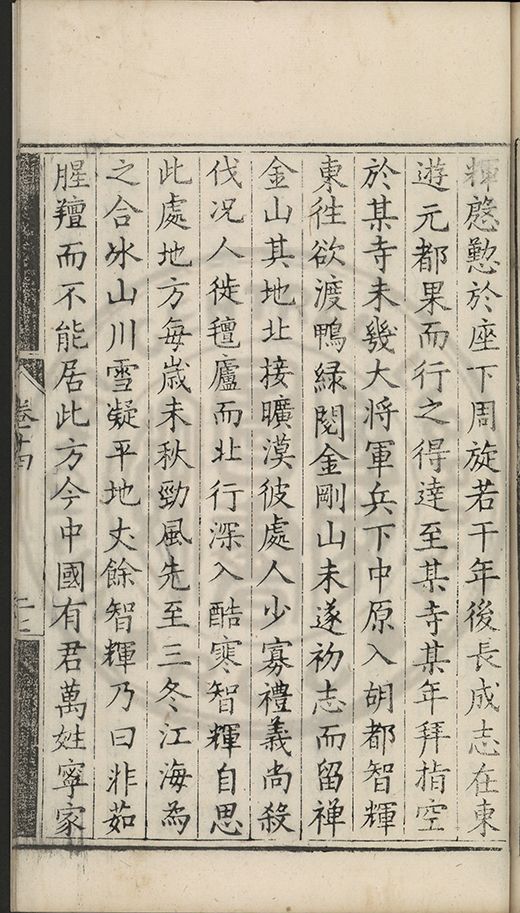 輝慇懃於座下周旋若干年後長成志在東
遊元都果而行之得達至某寺某年拜指空
於某寺未幾大將軍兵下中原入胡都智輝
東徃欲渡鴨緑閲金剛山未遂初志而留禅
金山其地北接曠漠彼處人少寡禮義尚殺
伐况人徙氊廬而北行深入酷寒智輝自思
此處地方每歳未秋勁風先至三冬江海為
之合冰山川雪凝平地丈餘智輝乃曰非茹
腥羶而不能居此方今中國有君萬姓寧家
卷十四